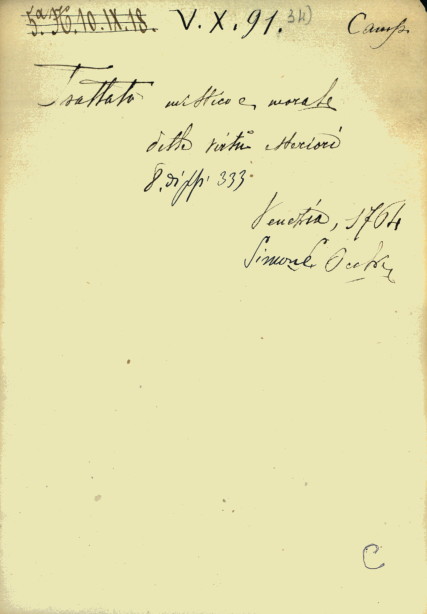 5.a H.10.IX.18. V.X.91. 34) Camp.
Trattato mistico e morale
delle virtù esteriori
8. di pp. 333.
Venezia, 1764
Simone Occhi
C